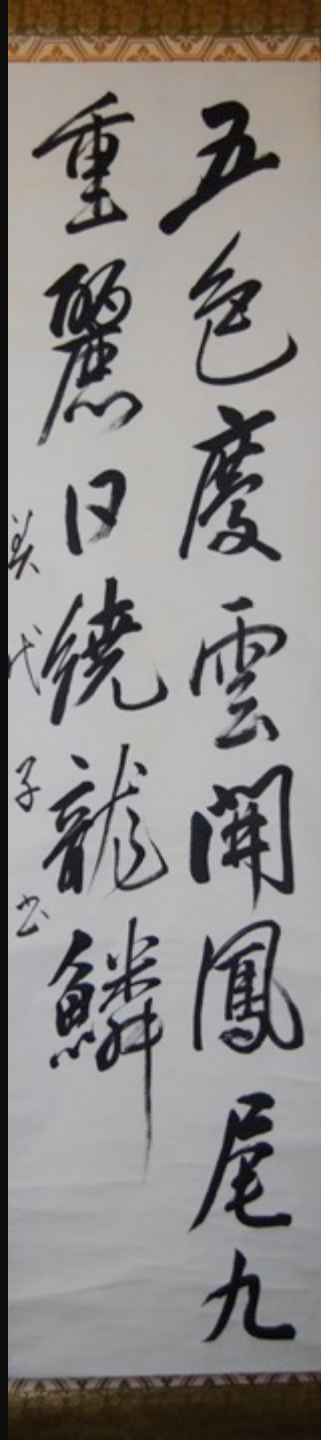 五色慶雲開鳳尾九
重麗日繞龍鱗
美代子書